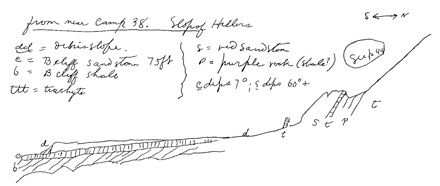 from near Camp 38. Slope of Hellers
S ↔ N
dd = debris slope.
c = B cliff sandstone 75 ft
b = B cliff shale
ttt = trachyte
S = red sandstone
P = purple rock (shale?)
c dips 7°; s dips 60° +
See p 44
d
d
t
S t P
t
c
b